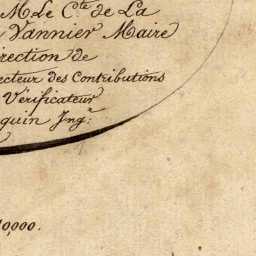 M Le C.te de La
Vannier Maire
irection de
ecteur des Contributions
Vérificateur
quin Ing.r
0,000.